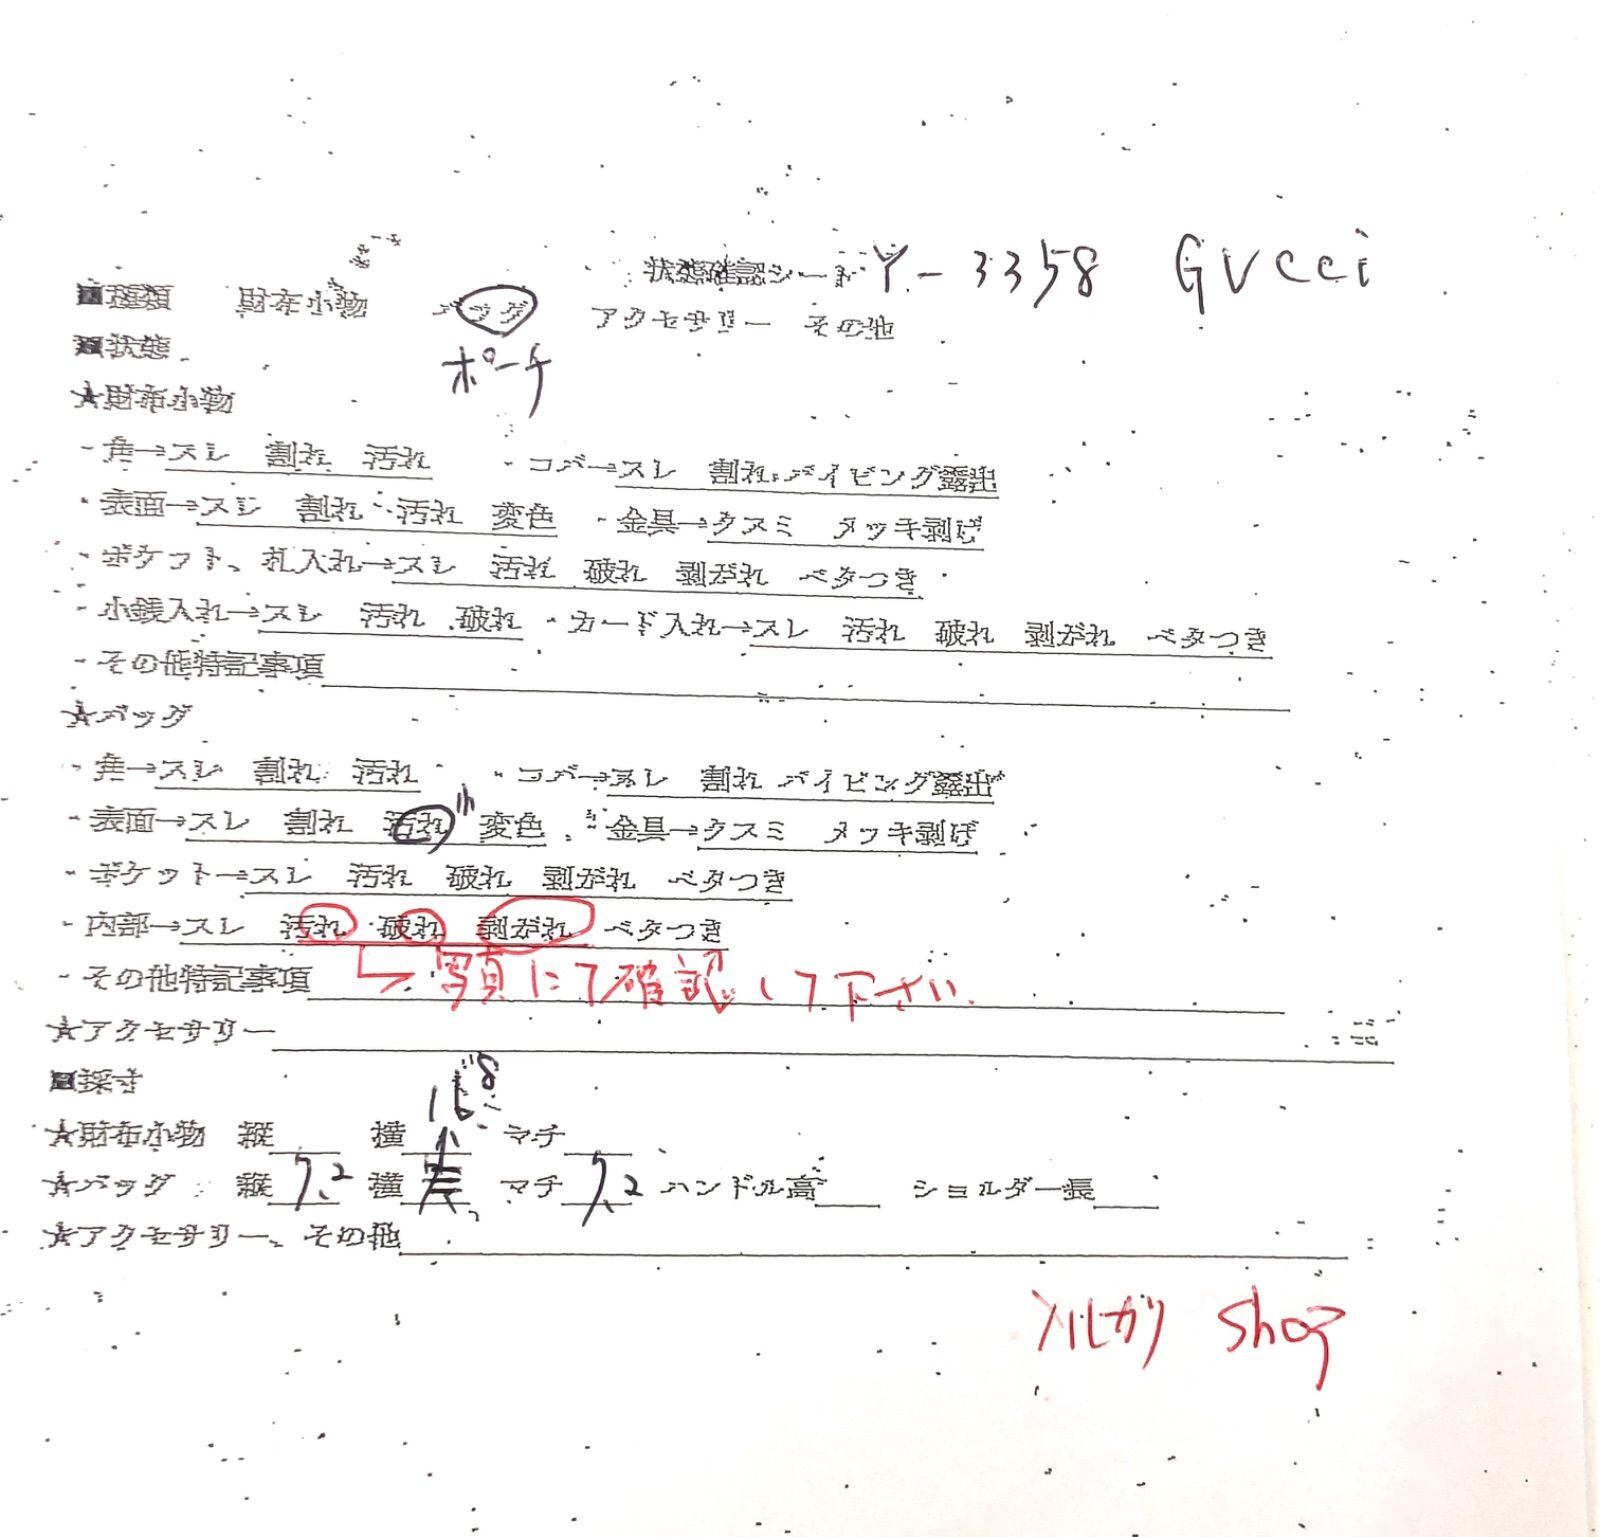 状態確認シート Y-3358 GUCCI
■種類 財布小物 バッグ アクセサリー その他
ポーチ
■状態
★財布小物
・角→スレ 割れ 汚れ ・コバ→スレ 割れ パイピング露出
・表面→スレ 割れ 汚れ 変色 ・金具→クスミ メッキ剥げ
・ポケット、札入れ→スレ 汚れ 破れ 剥がれ ベタつき
・小銭入れ→スレ 汚れ 破れ ・カード入れ→スレ 汚れ 破れ 剥がれ ベタつき
・その他特記事項
★バッグ
・角→スレ 割れ 汚れ ・コバ→スレ 割れ パイピング露出
・表面→スレ 割れ 汚れ 小 変色 ・金具→クスミ メッキ剥げ
・ポケット→スレ 汚れ 破れ 剥がれ ベタつき
・内部→スレ 汚れ 破れ 剥がれ ベタつき
・その他特記事項 写真にて確認して下さい
★アクセサリー
■採寸
★財布小物 縦 横 マチ
★バッグ 縦 7.2 横 マチ 7.2 ハンドル高 ショルダー長
★アクセサリー、その他
shop